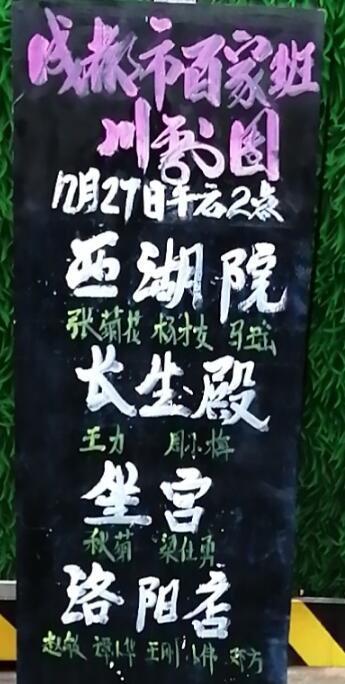 成都市百家班
川剧团
12月27日午后2点
西湖院
张菊花 杨枝 马瑶
长生殿
王力 周小梅
坐宫
秋菊 梁仕勇
洛阳店
赵敏 谭小华 王刚 小伟 邓方